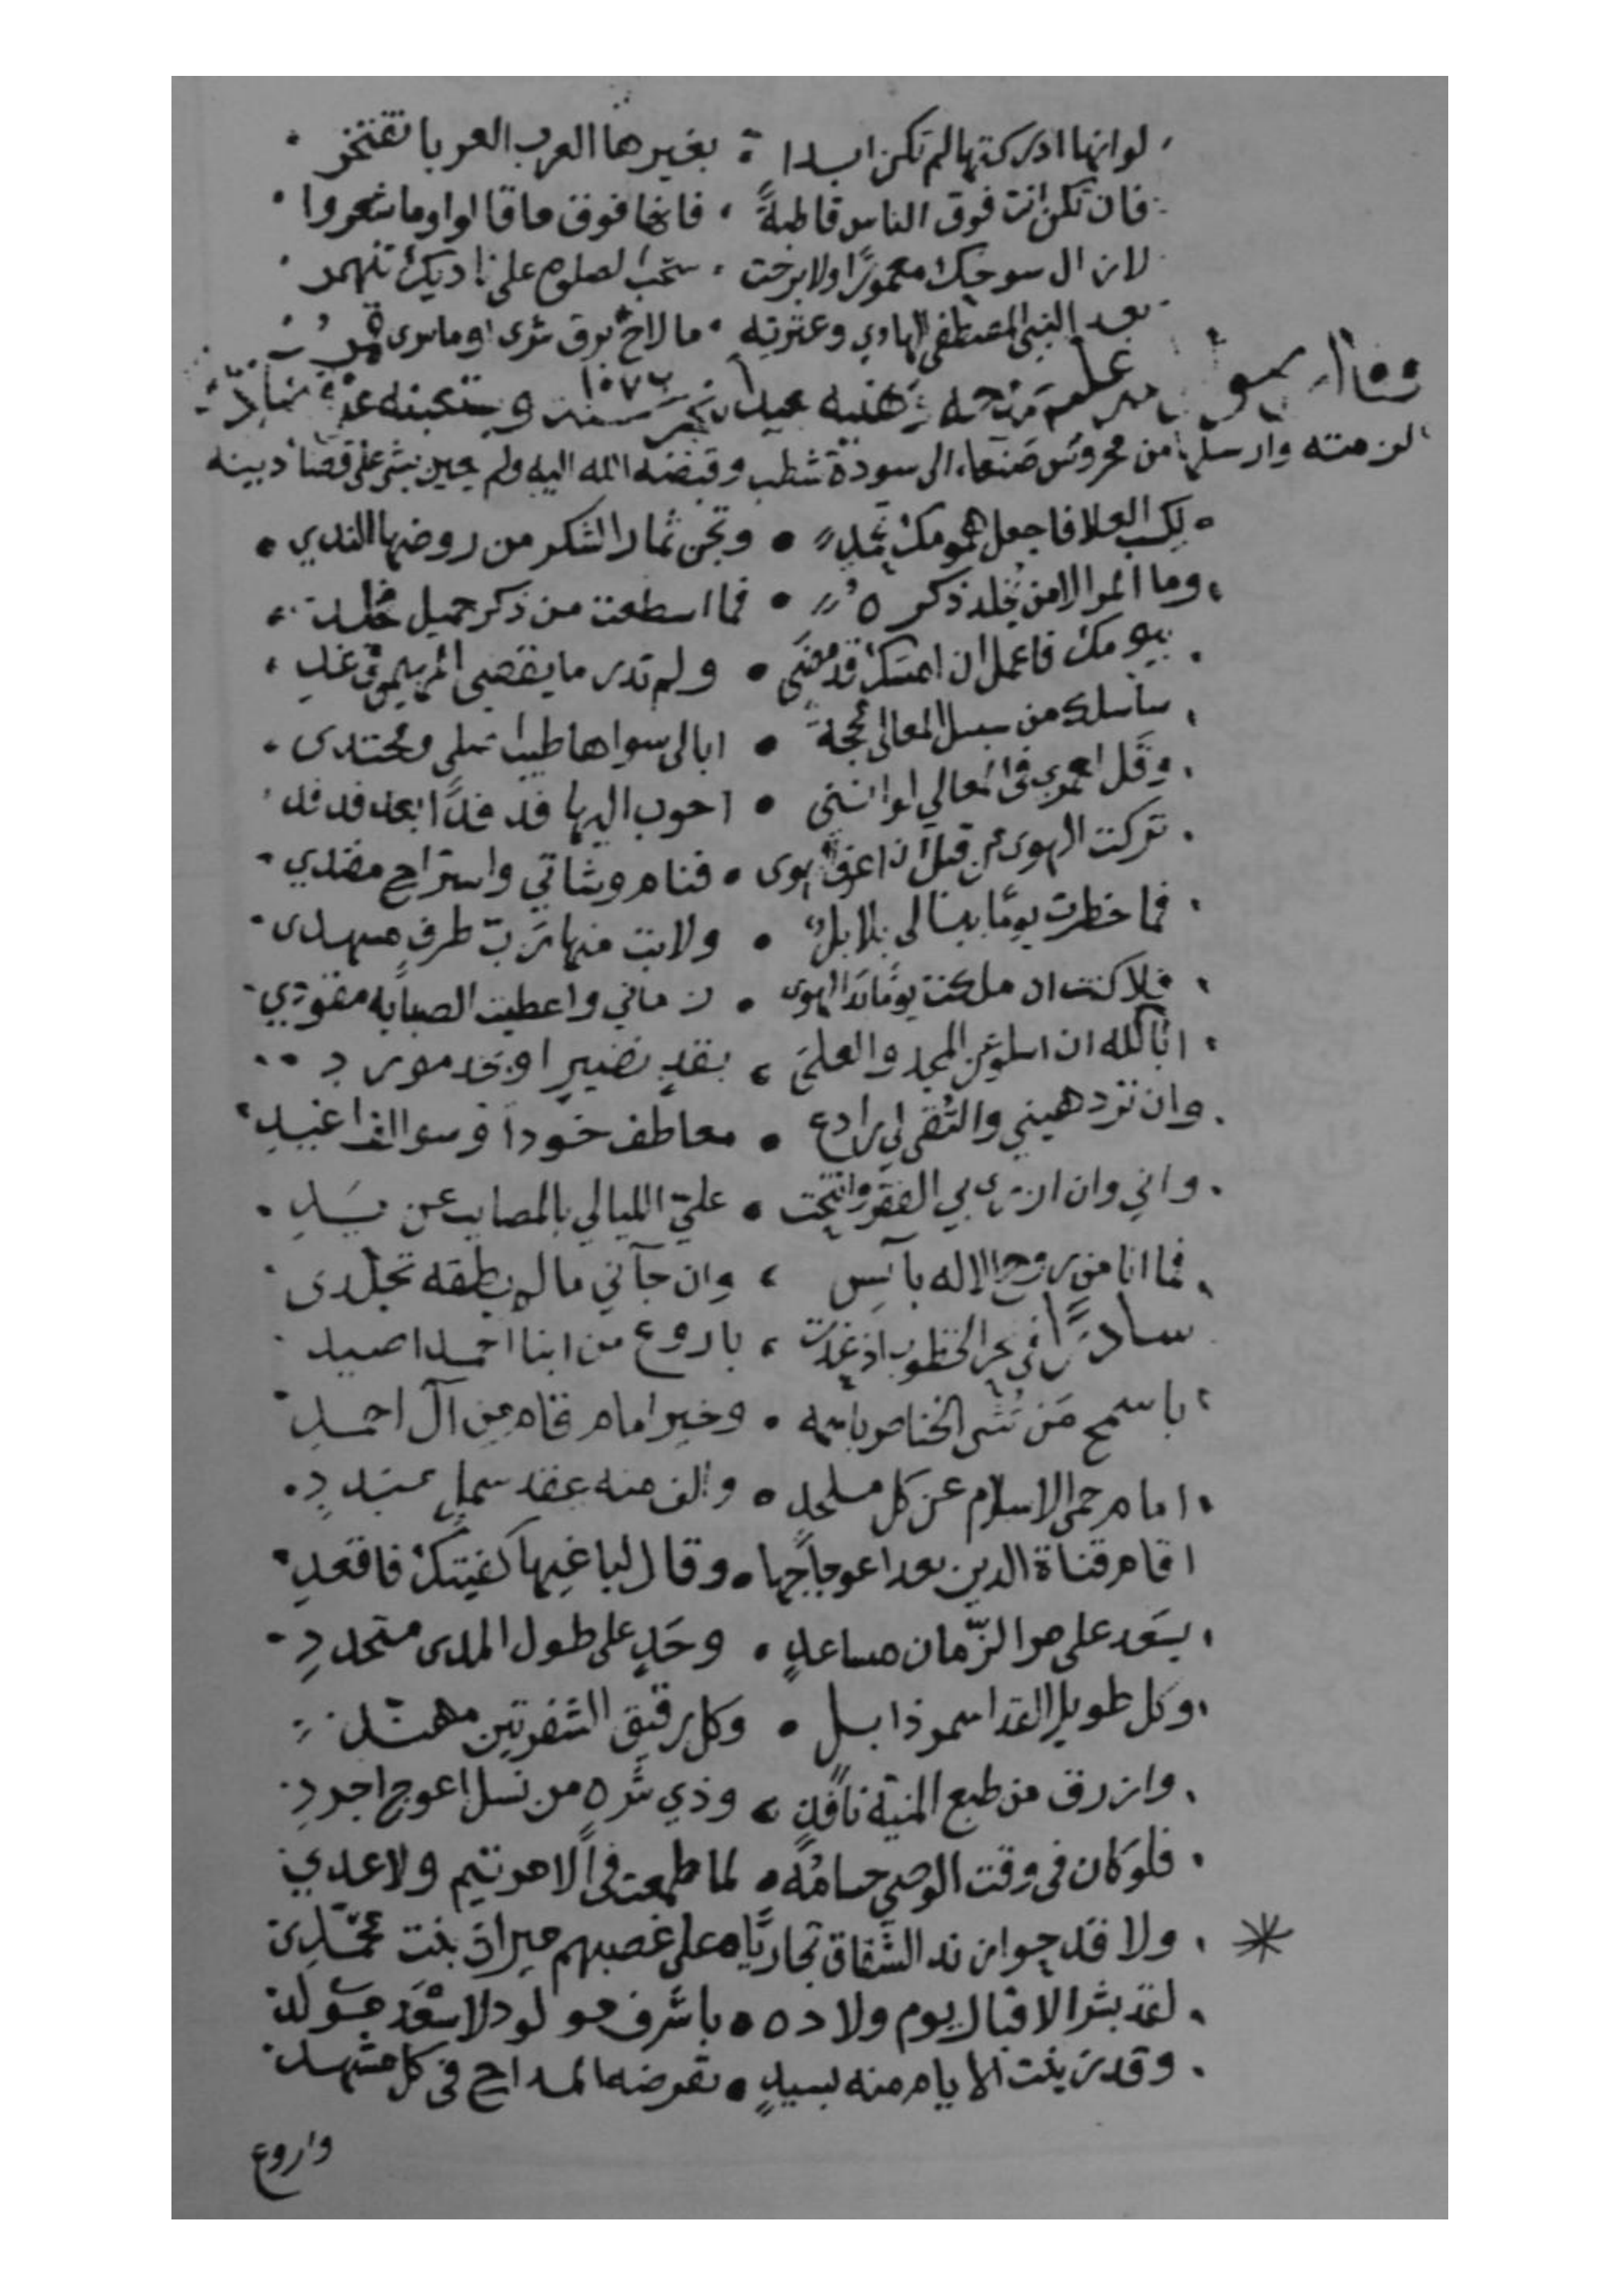 لو انها ادركتها لم تكن ابدا بغيرها العرب العربا تفتخر
فان تكن انت فوق الناس قاطبةً فانها فوق ما قالوا وما شعروا
لا زال سوحك معمورًا ولا برحت سحب الصلوة على ناديك تنهمر
بعد النبي المصطفى الهادي وعترته ما لاح برق شرى او ما سرى قمر
وقال يمدحه ويهنيه بعيد النحر سنة ١٠٧٢ ويستعينه على
لزمته وارسلها من محروس صنعاء الى سودة شطب وقبضه الله اليه ولم يعين بشي على قضا دينه
لكسب العلا فاجعل همومك تحمد وتجن ثمار الشكر من روضها الندي
وما المرء الا من يخلد ذكره فما اسطعت من ذكر جميل فخلد
بيومك فاعمل ان امسك قد مضى ولم تدر ما يقضى المهيمن في غد
ساسلك من سبل المعالي محجة ابا لي سواها طيب اصلي ومحتدى
وقل لعمري في المعالي لو انني اجوب اليها فدفدًا بعد فدفد
تركت الهوى من قبل ان اعرف الهوى فنام وشاتي واستراح مفندي
فما خطرت يومًا ببالي بلابل ولا بت منها رب طرف مسهدى
فلا كنت ان ملكت يومًا يد الهوى زماني واعطيت الصبابه مقودي
ابا لله ان اسلو عن المجد والعلى بقد نضير او بخد مورد
وان تزدهيني والتقى لي رادع معاطف خود او سوالف اغيد
واني وان ازرى بي الفقر وانتحت علي الليالي بالمصايب عن يد
فما انا من روح الاله بآيس وان جآني ما لم يطقه تجلدى
سادرًا في نحر الخطوب اذ غدت باروع من ابنا احمد اصيد
باسمح من تثنى الخناصر باسمه وخير امام قام من آل احمد
امام حمى الاسلام عن كل ملحد والف منه عقد شمل مبدد
اقام قناة الدين بعد اعوجاجها وقال لباغيها كفيتك فاقعد
بسعد على مر الزمان مساعد وجد على طول المدى متجدد
وكل طويل القد اسمر ذابل وكل رقيق الشفرتين مهند
وازرق من طبع المنية نافذ وذي شره من نسل اعوج اجرد
فلو كان في وقت الوصي حسامه لما طمعت في الامر تيم ولا عدي
ولا قدحوا زند الشقاق تجاريًا على غصبهم ميراث بنت محمد
لقد بشر الاقبال يوم ولاده باشرف مولود لاسعد مولد
وقد زينت الايام منه بسيد تقرضه المداح في كل مشهد
واروع